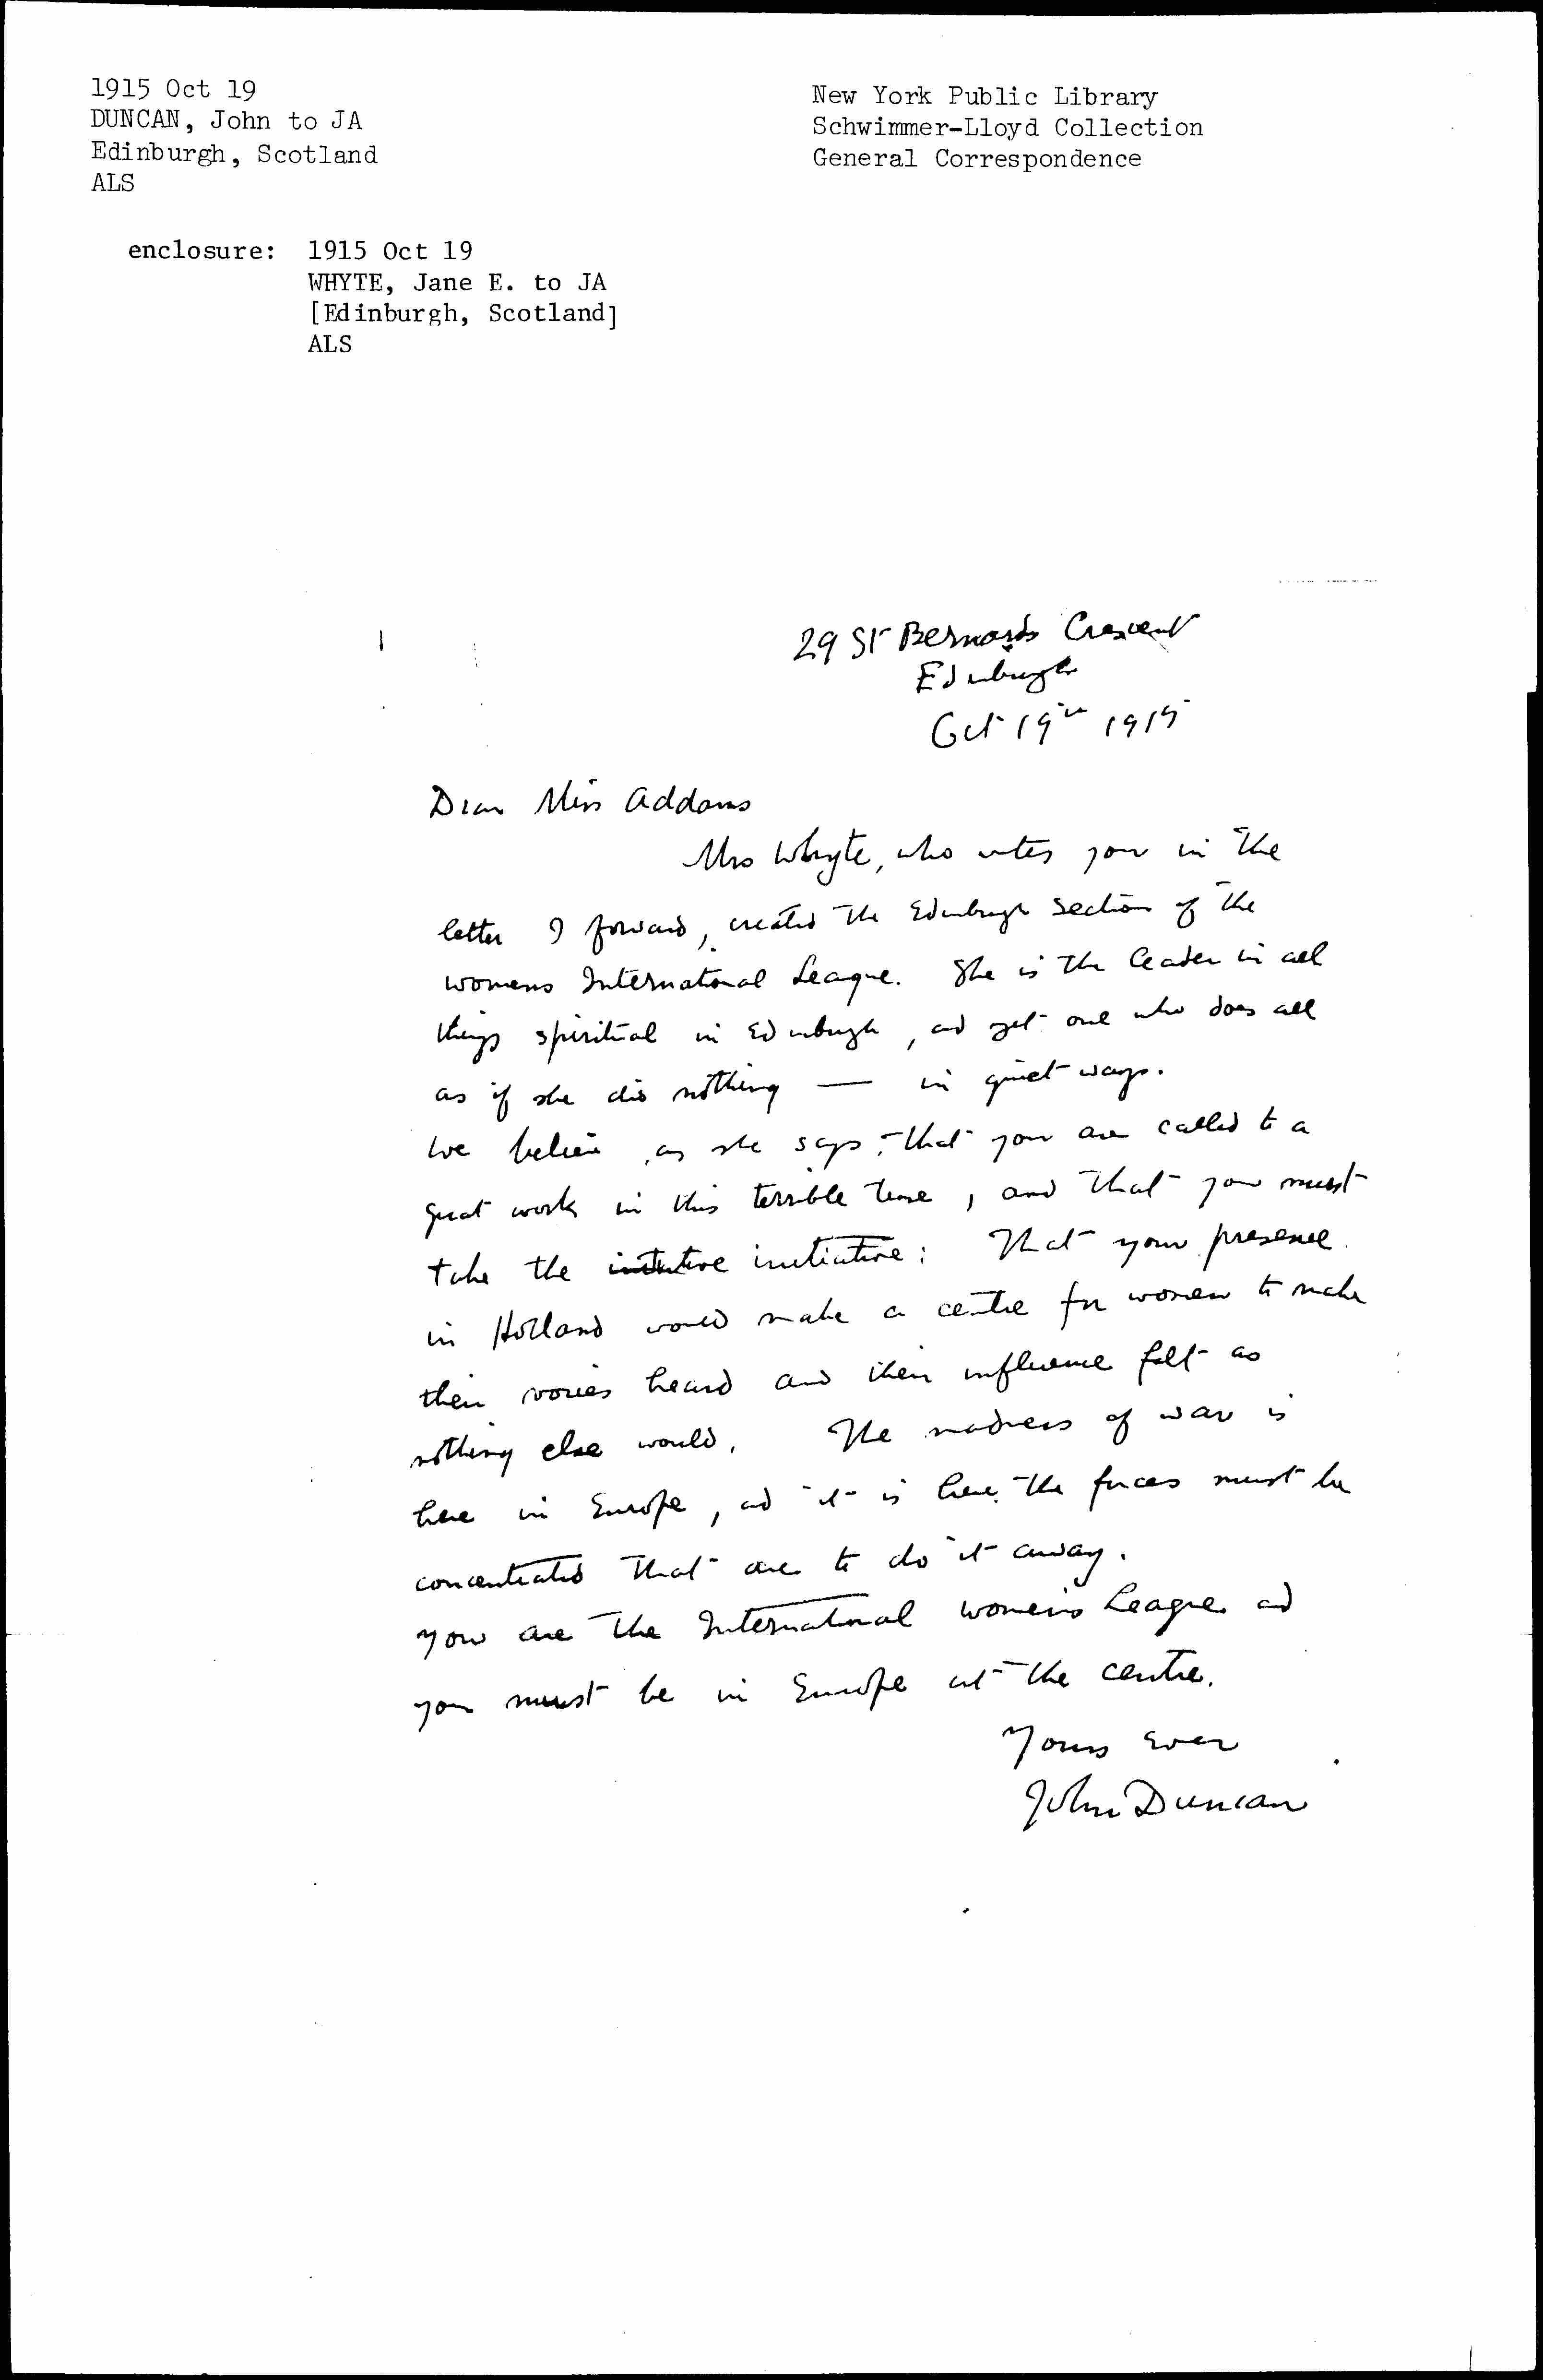 1915 Oct 19
DUNCAN, John to JA
Edinburgh, Scotland
ALS
New York Public Library
Schwimmer-Lloyd Collection
General Correspondence
enclosure: 1915 Oct 19
WHYTE, Jane E. to JA
[Edinburgh, Scotland]
ALS
29 St Bernards Crescent
Edinburgh
Oct 19th 1915
Dear Miss Addams
Mrs Whyte, who writes you in the
letter I forward, created the Edinburgh section of the
womens International League. She is the leader in all
things spiritual in Edinburgh, and yet one who does all
as if she did nothing — in quiet ways.
We believe, as she says, that you are called to a
great work in this terrible time, and that you must
take the initiative: That your presence
in Holland would make a centre for women to make
their voices heard and their influence felt as
nothing else would. The madness of war is
here in Europe, and it is here the forces must be
concentrated that are to do it away.
You are the International Women's League and
you must be in Europe at the centre.
Yours ever
John Duncan